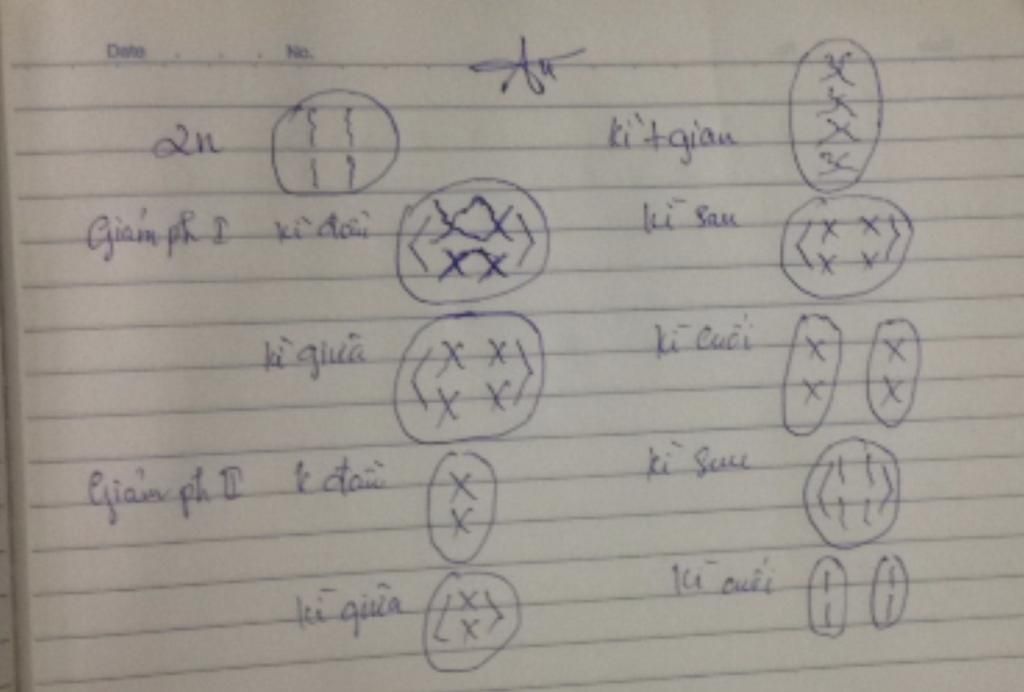 Date No.
2n kì tgian
Giảm ph I kì đầu kì sau
kì giữa kì cuối
Giảm ph II k đầu kì sau
kì giữa kì cuối